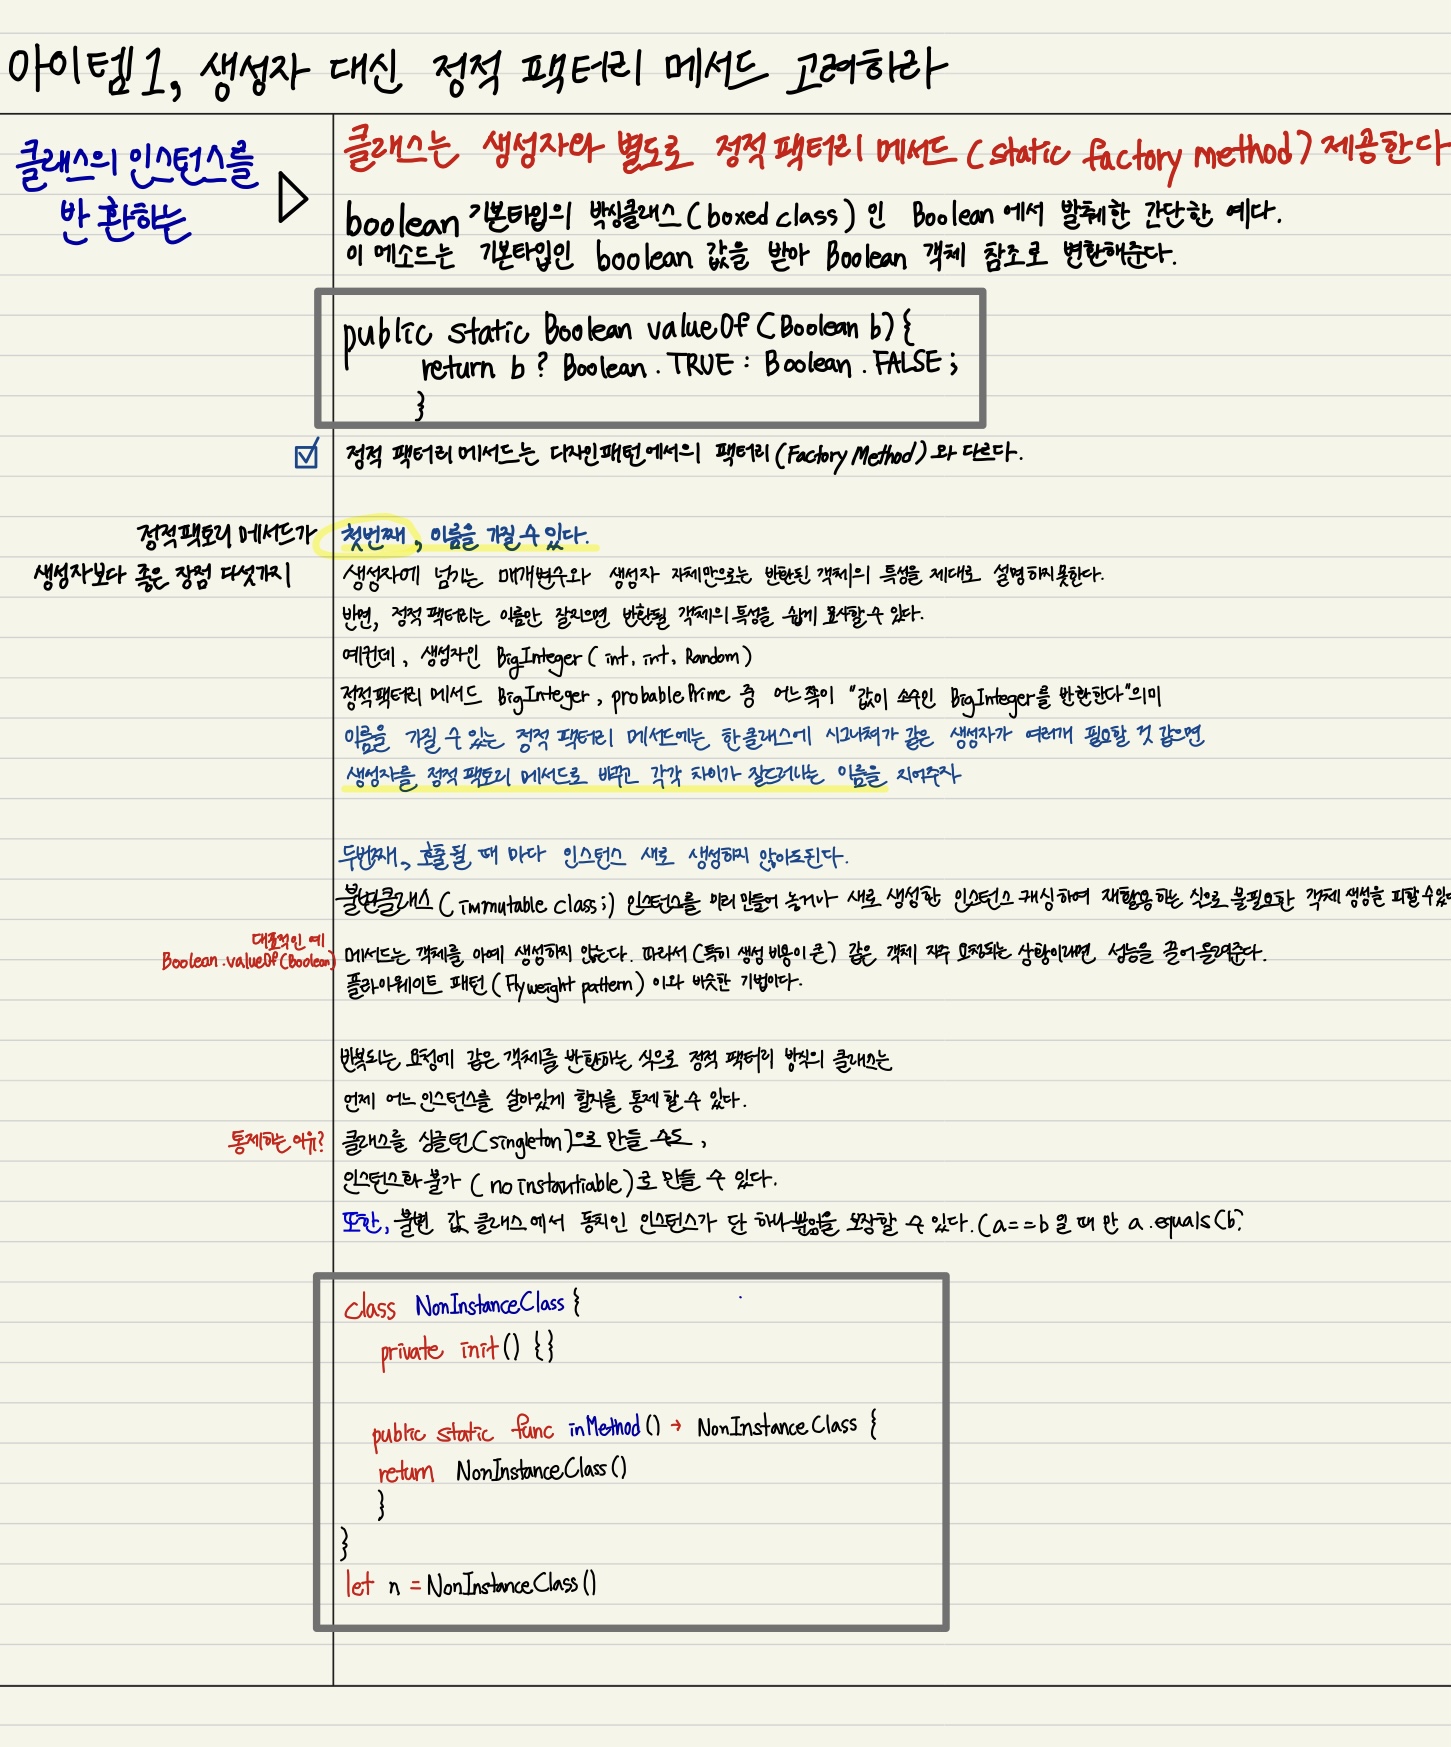 아이템1, 생성자 대신 정적 팩터리 메서드 고려하라
클래스의 인스턴스를
반환하는
클래스는 생성자와 별도로 정적 팩터리 메서드 (static factory method) 제공한다
boolean 기본타입의 박싱클래스 (boxed class) 인 Boolean 에서 발췌한 간단한 예다.
이 메소드는 기본타입인 boolean 값을 받아 Boolean 객체 참조로 변환해준다.
public static Boolean valueOf (Boolean b) {
return b ? Boolean.TRUE : Boolean.FALSE;
}
정적 팩터리 메서드는 디자인패턴에서의 팩터리 (Factory Method) 와 다르다.
정적팩토리 메서드가
생성자보다 좋은 장점 다섯가지
첫번째, 이름을 가질 수 있다.
생성자에 넘기는 매개변수와 생성자 자체만으로는 반환된 객체의 특성을 제대로 설명하지못한다.
반면, 정적 팩터리는 이름만 잘지으면 반환될 객체의 특성을 쉽게 묘사할 수 있다.
예컨데, 생성자인 BigInteger (int, int, Random)
정적팩터리 메서드 BigInteger, probablePrime 중 어느쪽이 "값이 소수인 BigInteger를 반환한다"의미
이름을 가질 수 있는 정적 팩터리 메서드에는 한클래스에 시그니쳐가 같은 생성자가 여러개 필요할 것 같으면
생성자를 정적 팩토리 메서드로 바꾸고 각각 차이가 잘드러나는 이름을 지어주자
두번째, 호출될 때 마다 인스턴스 새로 생성하지 않아도된다.
불변클래스 (immutable class;) 인스턴스를 미리 만들어 놓거나 새로 생성한 인스턴스 캐싱하여 재활용하는 식으로 불필요한 객체 생성을 피할 수있
대표적인 예
Boolean.valueOf(Boolean)
메서드는 객체를 아예 생성하지 않는다. 따라서 (특히 생성 비용이 큰) 같은 객체 자주 요청되는 상황이라면 성능을 끌어올려준다.
플라이웨이트 패턴 (Flyweight pattern) 이와 비슷한 기법이다.
반복되는 요청에 같은 객체를 반환하는 식으로 정적 팩터리 방식의 클래스는
언제 어느 인스턴스를 살아있게 할지를 통제 할 수 있다.
통제하는 이유?
클래스를 싱글턴(singleton)으로 만들 수도,
인스턴스화 불가 (no instantiable)로 만들 수 있다.
또한, 불변 값 클래스에서 동치인 인스턴스가 단 하나뿐임을 보장할 수 있다. (a==b 일 때 만 a.equals(b)
class NonInstanceClass {
private init() {}
public static func inMethod() → NonInstanceClass {
return NonInstanceClass()
}
}
let n = NonInstanceClass()